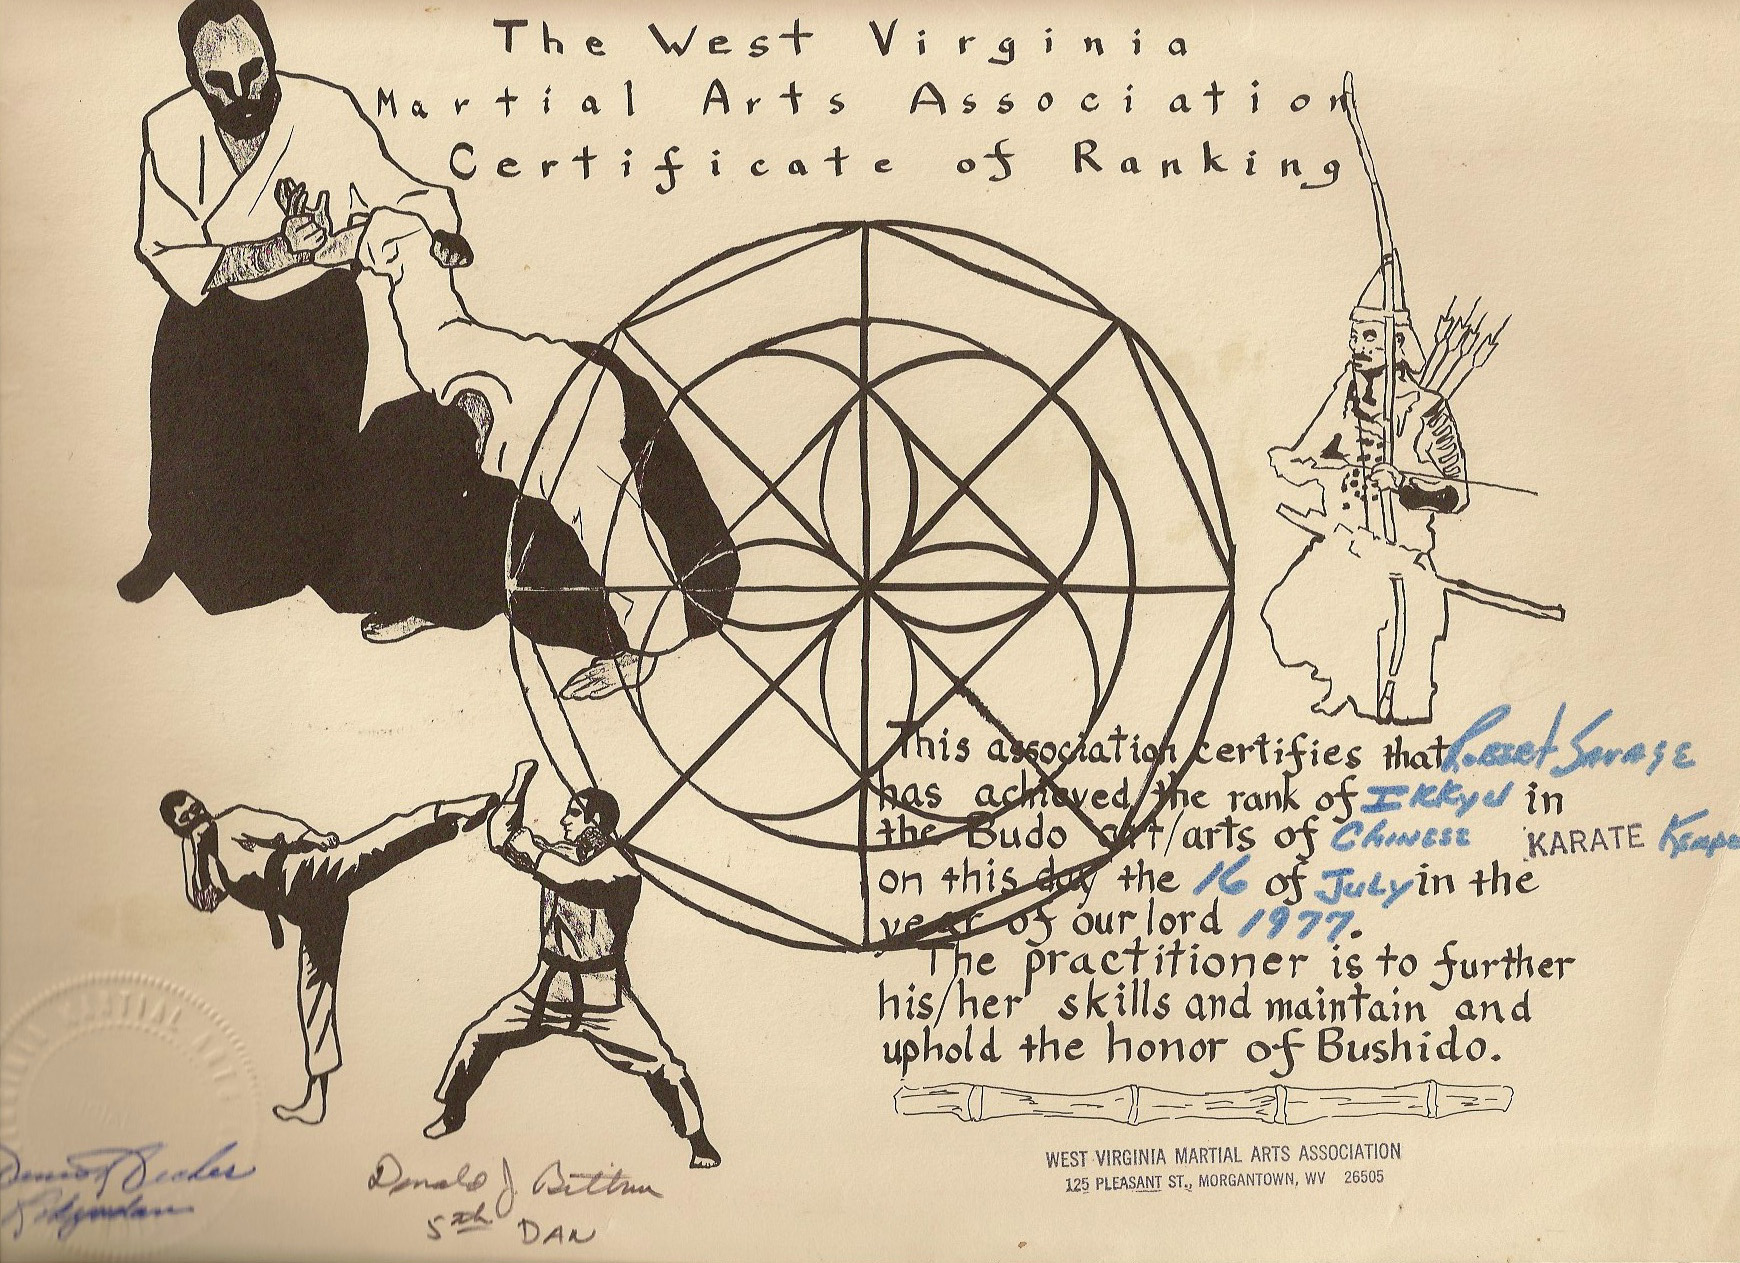 The West Virginia
Martial Arts Association
Certificate of Ranking
This association certifies that Robert Savage
has achieved the rank of IKKyu in
the Budo art/arts of CHINESE KARATE Kempo
on this day the 16 of July in the
year of our lord 1977.
The practitioner is to further
his/her skills and maintain and
uphold the honor of Bushido.
WEST VIRGINIA MARTIAL ARTS ASSOCIATION
125 PLEASANT ST., MORGANTOWN, WV 26505
MARTIAL ARTS
Donald J.
5th DAN